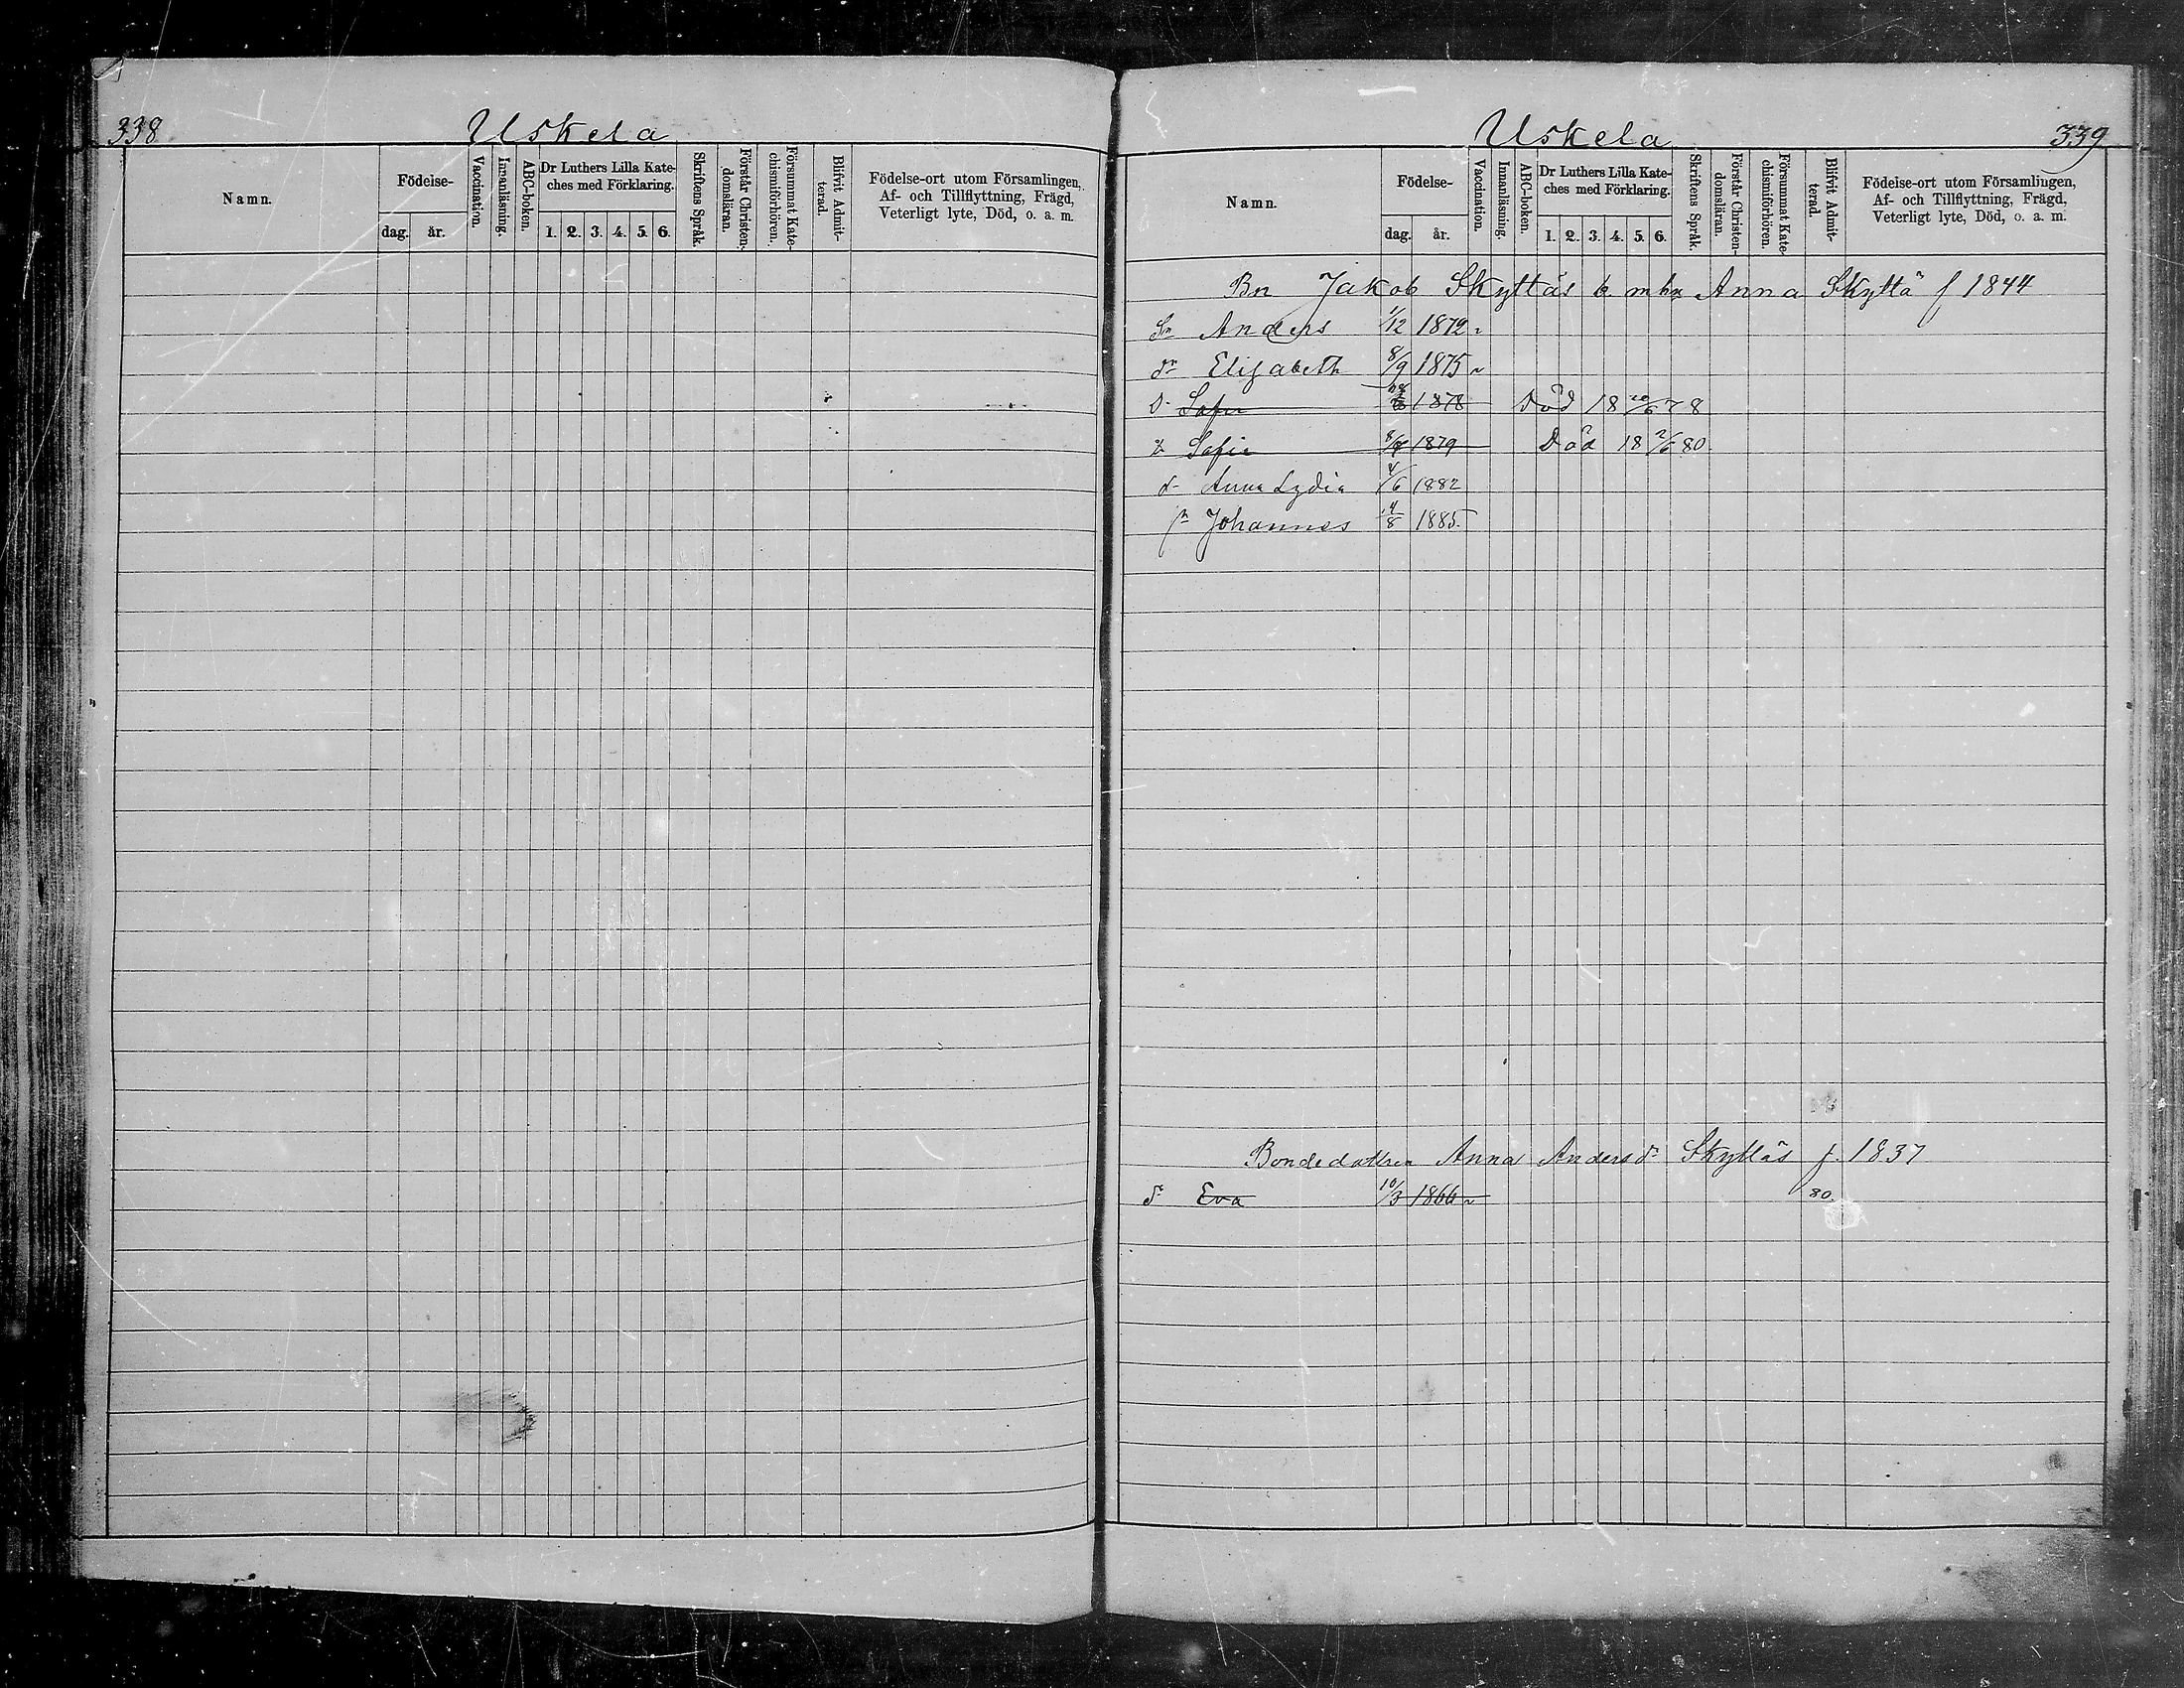 338
Uskela
Namn.
Födelse-
dag. år.
Vaccination.
Innanläsning.
ABC-boken.
Dr Luthers Lilla Kate-
ches med Förklaring.
1. 2. 3. 4. 5. 6.
Skriftens Språk.
Förstår Christen-
domsläran.
Försummat Kate-
chismiförhören.
Blifvit Admit-
terad.
Födelse-ort utom Församlingen,
Af- och Tillflyttning, Frägd,
Veterligt lyte, Död, o. a. m.
Uskela
339
Namn.
Födelse-
dag. år.
Vaccination.
Innanläsning.
ABC-boken.
Dr Luthers Lilla Kate-
ches med Förklaring.
1. 2. 3. 4. 5. 6.
Skriftens Språk.
Förstår Christen-
domsläran.
Försummat Kate-
chismiförhören.
Blifvit Admit-
terad.
Födelse-ort utom Församlingen,
Af- och Tillflyttning, Frägd,
Veterligt lyte, Död, o. a. m.
Bn Jakob Skyttäs b. m hu Anna Skyttä f 1844
Sn Anders 1/12 1872
dr Elisabeth 8/9 1875
D. 1878 Död 18 20/6 78
Sofia 1879 Död 18 2/6 80.
d- Anna Lydia 4/6 1882
sn Johannes 14/8 1885.
Bondedottren Anna Andersdr Skyttäs f. 1837
dr Eva 10/3 1866 80.